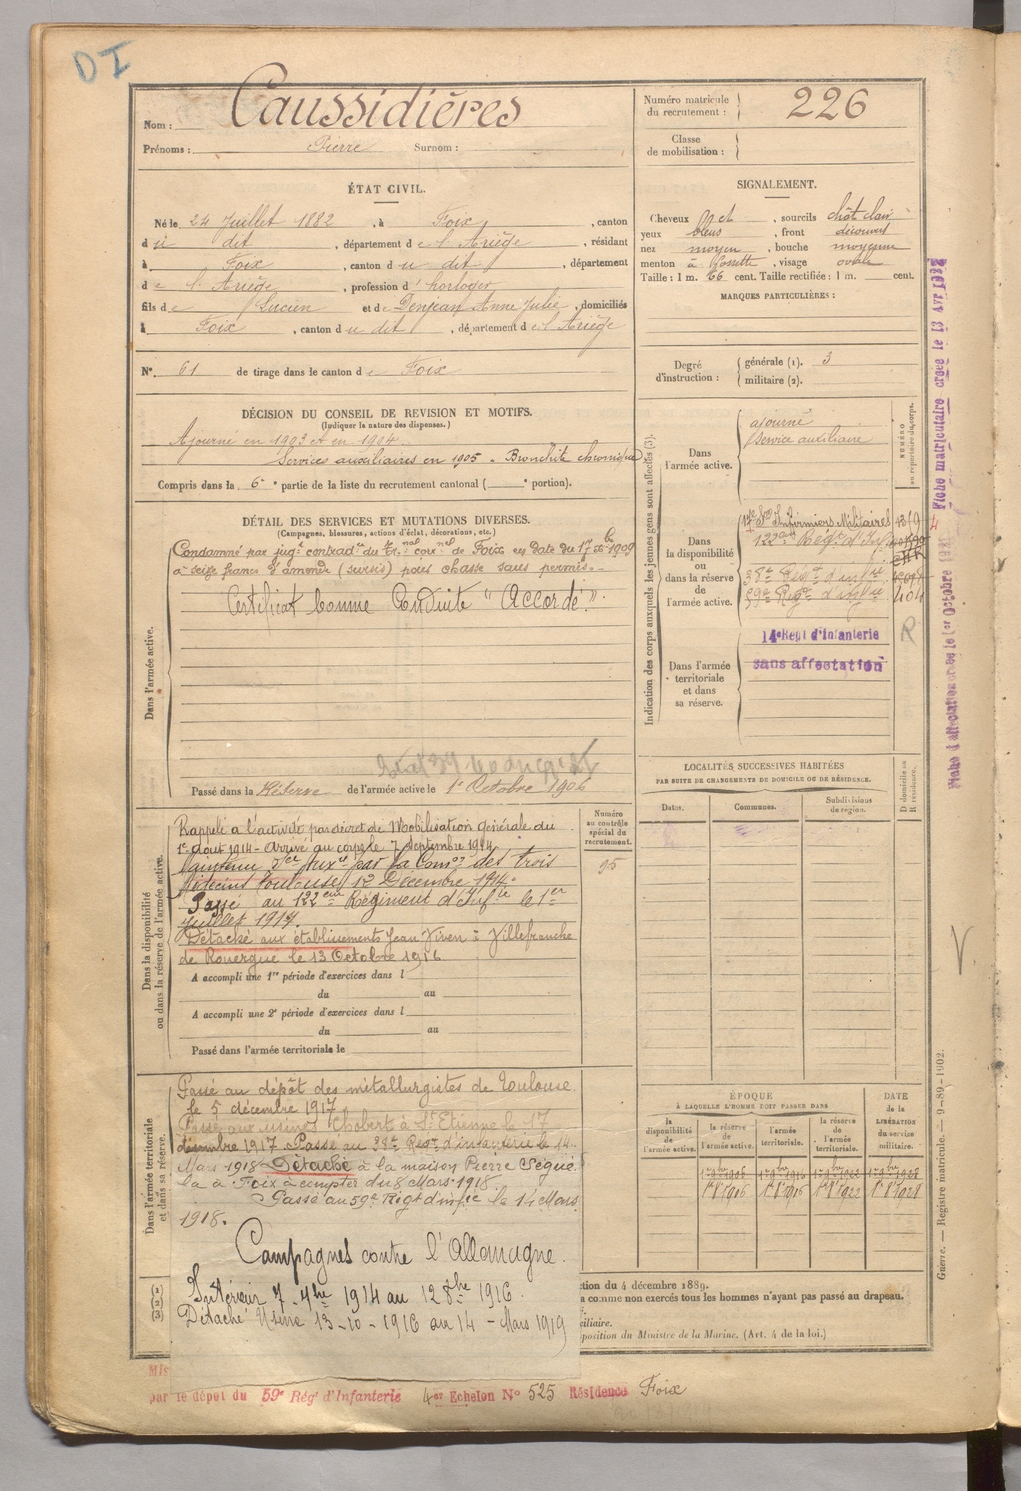 DI
Nom : Caussidières
Prénoms : Pierre Surnom :
Numéro matricule du recrutement : 226
Classe de mobilisation :
ÉTAT CIVIL.
Né le 24 Juillet 1882, à Foix, canton
d u dit, département de l'Ariège, résidant
à Foix, canton du dit, département
de l'Ariège, profession d'horloger
fils de Lucien et de Donjean Anne Julie, domiciliés
à Foix, canton du dit, département de l'Ariège
N° 61 de tirage dans le canton de Foix
SIGNALEMENT.
Cheveux chat, sourcils chât clair
yeux bleus, front découvert
nez moyen, bouche moyenne
menton à fossette, visage ovale
Taille : 1 m. 66 cent. Taille rectifiée : 1 m. cent.
MARQUES PARTICULIÈRES :
Degré d'instruction : générale (1). 3
militaire (2).
DÉCISION DU CONSEIL DE REVISION ET MOTIFS.
(Indiquer la nature des dispenses.)
Ajourné en 1903 et en 1904.
Services auxiliaires en 1905 - Bronchite chronique
Compris dans la 6e partie de la liste du recrutement cantonal ( e portion).
DÉTAIL DES SERVICES ET MUTATIONS DIVERSES.
(Campagnes, blessures, actions d'éclat, décorations, etc.)
Dans l'armée active.
Condamné par jugt contradre du Trnal corrnel de Foix en date du 1909
à seize francs d'amende (sursis) pour chasse sans permis.
Certificat bonne Conduite "Accordé".
Passé dans la Réserve de l'armée active le 1r Octobre 1906
Indication des corps auxquels les jeunes gens sont affectés (3).
NUMÉRO au répertoire du corps.
Dans l'armée active.
ajourné
service auxiliaire
Dans la disponibilité ou dans la réserve de l'armée active.
Infirmiers Militaires
122e Régt d'Inf
38e Régt d'infie
59e Régt d'infie 404
Dans l'armée territoriale et dans sa réserve.
14e Regt d'Infanterie
sans affectation
R
LOCALITÉS SUCCESSIVES HABITÉES
PAR SUITE DE CHANGEMENTS DE DOMICILE OU DE RÉSIDENCE.
Dates. Communes. Subdivisions de région. D domicile ou R résidence.
Dans la disponibilité ou dans la réserve de l'armée active.
Numéro au contrôle spécial du recrutement.
95
Rappelé à l'activité par décret de Mobilisation générale du
1er Août 1914 - Arrivé au corps le 7 Septembre 1914
Maintenu Sce Auxre par la Comon des trois
Médecins Toulouse 12 Décembre 1914.
Passé au 122ème Régiment d'Infie le 1er
Juillet 191
Détaché aux établissements Jean Viven à Villefranche
de Rouergue le 13 Octobre 1916
A accompli une 1re période d'exercices dans l
du au
A accompli une 2e période d'exercices dans l
du au
Passé dans l'armée territoriale le
Dans l'armée territoriale et dans sa réserve.
Passé au dépôt des métallurgistes de Toulouse
le 5 décembre 1917
Passé aux usines Chobert à St Etienne le 17
décembre 1917. Passé au 38e Regt d'infanterie le 14
Mars 1918 - Détaché à la maison Pierre Ségué
la à Foix à compter du 8 Mars 1918
Passé au 59e Régt d'infie le 14 Mars
1918.
Campagnes contre l'Allemagne.
Intérieur 7 - 9bre 1914 au 12 8bre 1916.
Détaché Usine 13-10-1916 au 14 - Mars 1919
ÉPOQUE
À LAQUELLE L'HOMME DOIT PASSER DANS
la disponibilité de l'armée active.
la réserve de l'armée active.
l'armée territoriale.
la réserve de l'armée territoriale.
DATE de la LIBÉRATION du service militaire.
(1)
(2)
(3)
ction du 4 décembre 1889.
a comme non exercés tous les hommes n'ayant pas passé au drapeau.
ciliaire.
position du Ministre de la Marine. (Art. 4 de la loi.)
Mis
par le dépôt du 59e Régt d'Infanterie 4er Echelon No 525 Résidence Foix
Fiche matriculaire créée le 13 Avr
Fiche d'affectation créée le 1er Octobre 1921
V
Guerre. — Registre matricule. — 9-89-1902.